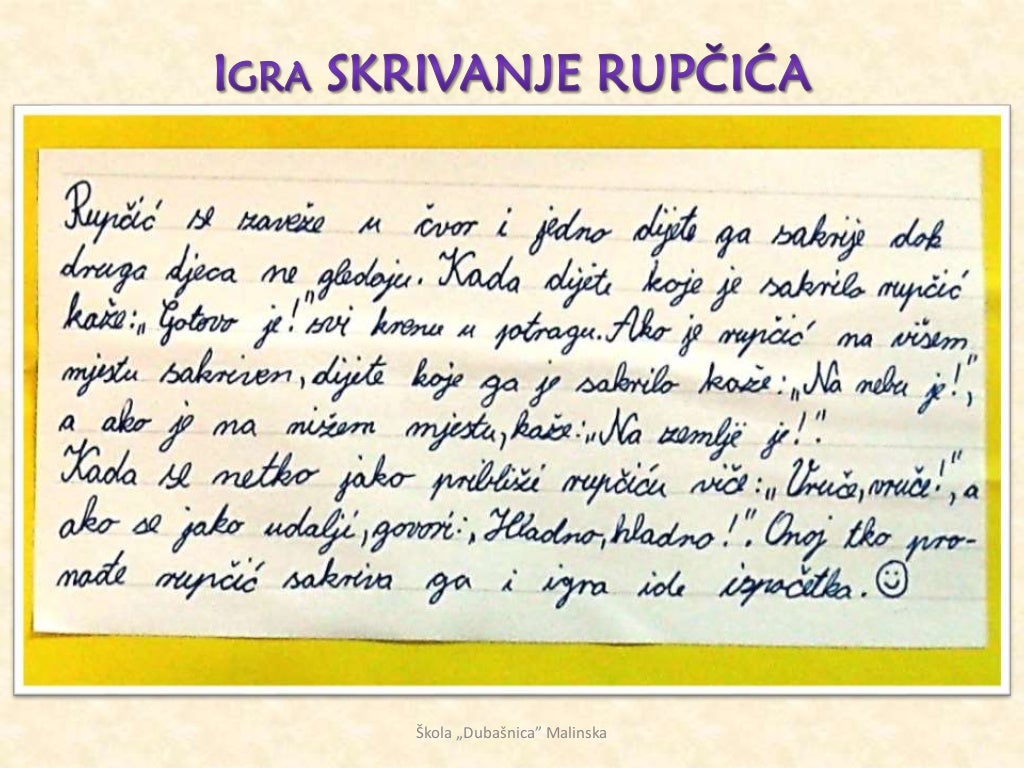 IGRA SKRIVANJE RUPČIĆA
Rupčić se zaveže u čvor i jedno dijete ga sakrije dok
druga djeca ne gledaju. Kada dijete koje je sakrilo rupčić
kaže:„Gotovo je!" svi krenu u potragu. Ako je rupčić na višem
mjestu sakriven, dijete koje ga je sakrilo kaže:„Na nebu je!",
a ako je na nižem mjestu, kaže:„Na zemlji je!".
Kada se netko jako približi rupčiću viče:„Vruće, vruće!", a
ako se jako udalji, govori:„Hladno, hladno!". Onaj tko pro-
nađe rupčić sakriva ga i igra ide ispočetka. ☺
Škola „Dubašnica” Malinska